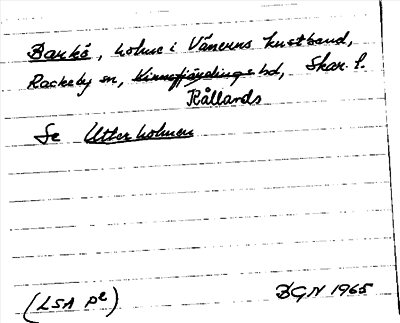 Barkö, holme i Vänerns kustband,
Rackeby sn, Kinnefjärdings hd, Skar. l.
Kållands
Se Utterholmen
(LSA P2) BGN 1965